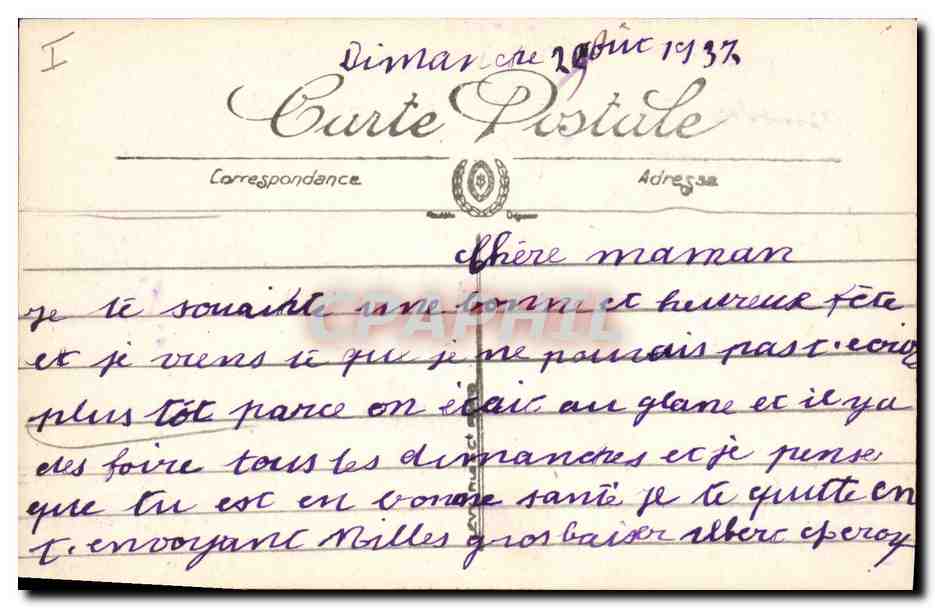 I
Dimanche 29 août 1937
Carte Postale
Correspondance
Adresse
Chère maman
je te souainte une bonne et heureux fête
et je viens te que je ne pouvais pas t.ecrire
plus tôt parce on étais au glane et il y a
des foire tous les dimanches et je pense
que tu est en bonne santé je te quitte en
t.envoyant Milles gros baiser Albert
CPAPHIL